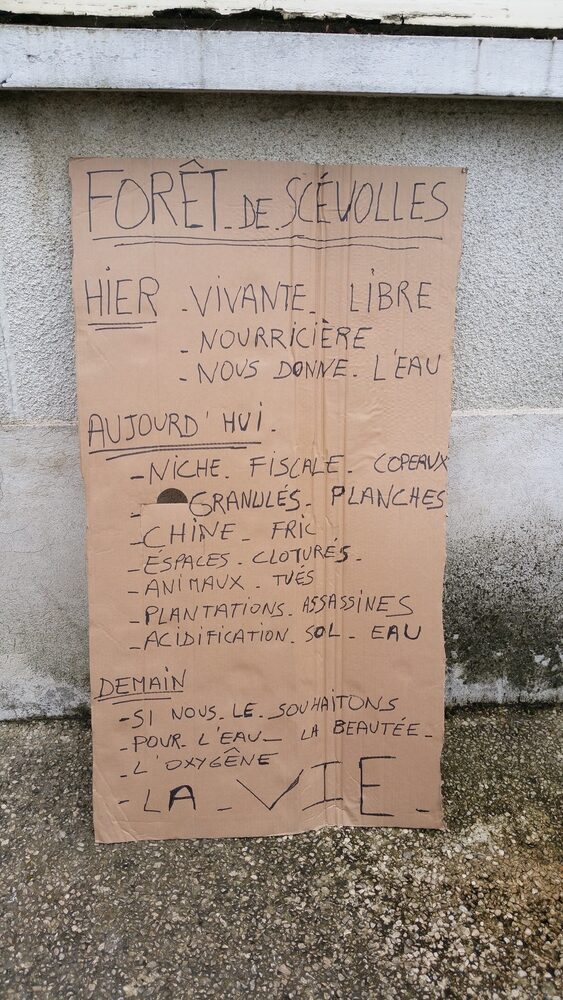 FORÊT. DE. SCÉVOLLES
HIER - VIVANTE. LIBRE
- NOURRICIÈRE
- NOUS DONNE. L'EAU
AUJOURD'HUI.
- NICHE. FISCALE. COPEAUX
- GRANULÉS. PLANCHES
- CHINE - FRIC
- ESPACES. CLOTURÉS.
- ANIMAUX. TUÉS
- PLANTATIONS. ASSASSINES
- ACIDIFICATION. SOL - EAU
DEMAIN
- SI NOUS. LE. SOUHAITONS
- POUR. L'EAU - LA BEAUTÉE -
- L'OXYGÊNE
- LA - VIE -